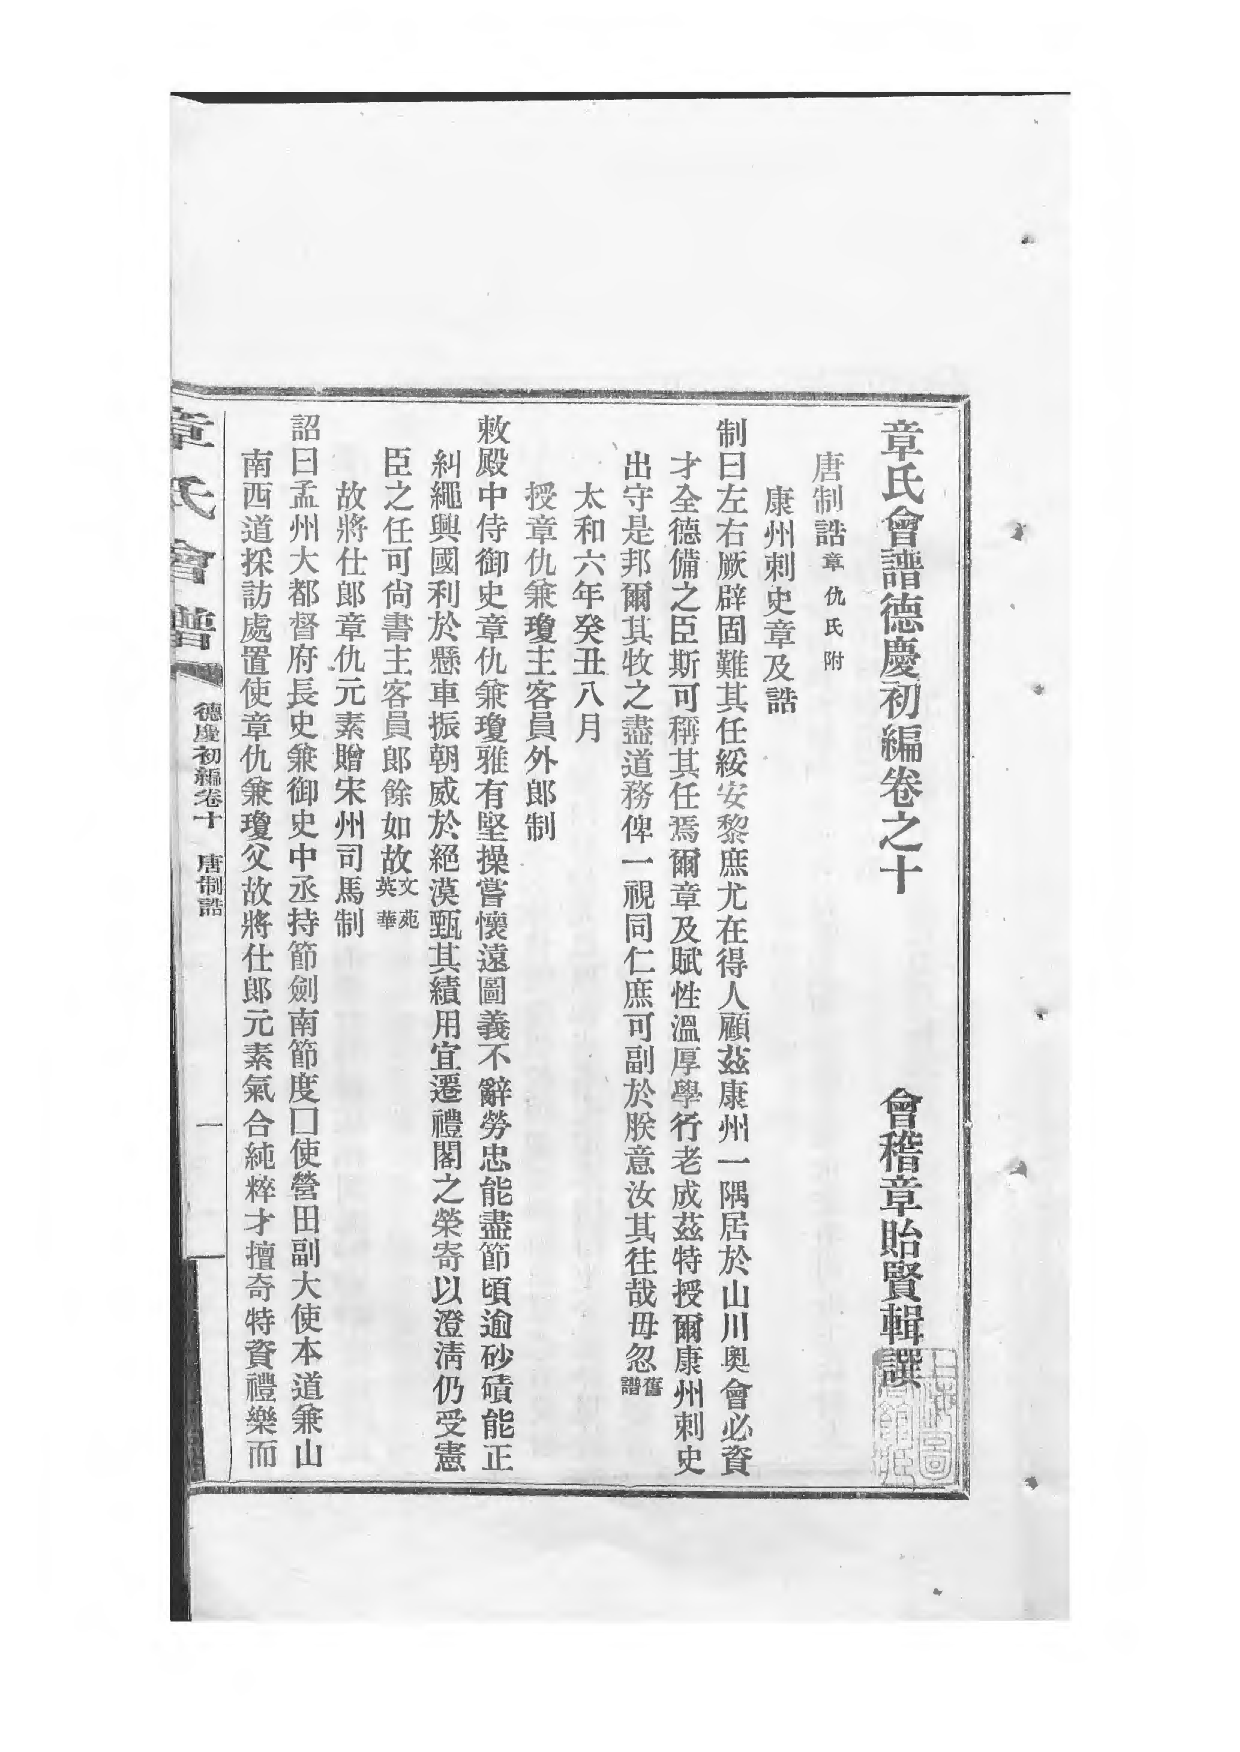 章氏會譜德慶初編卷之十　會稽章貽賢輯譔
唐制誥章仇氏附
康州刺史章及誥
制曰左右厥辟固難其任綏安黎庶尤在得人顧茲康州一隅居於山川奧會必資
才全德備之臣斯可稱其任焉爾章及賦性溫厚學行老成茲特授爾康州刺史
出守是邦爾其牧之盡道務俾一視同仁庶可副於朕意汝其往哉毋忽舊譜
太和六年癸丑八月
授章仇兼瓊主客員外郎制
敕殿中侍御史章仇兼瓊雅有堅操嘗懷遠圖義不辭勞忠能盡節頃逾砂磧能正
糾繩興國利於懸車振朝威於絕漠甄其績用宜遷禮閣之榮寄以澄清仍受憲
臣之任可尙書主客員郎餘如故文苑英華
故將仕郎章仇元素贈宋州司馬制
詔曰孟州大都督府長史兼御史中丞持節劍南節度囗使營田副大使本道兼山
南西道採訪處置使章仇兼瓊父故將仕郎元素氣合純粹才擅奇特資禮樂而
章氏會譜　德慶初編卷十　唐制誥　一